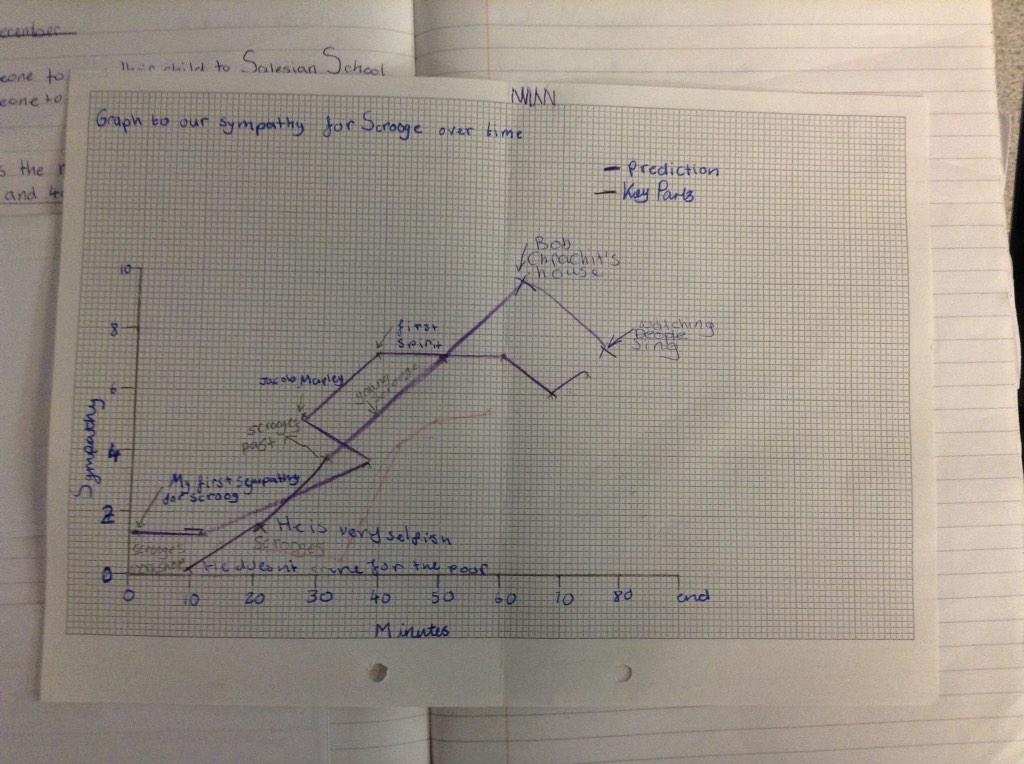 ecember
eone to their child to Salesian School
eone to
s the
and
Graph to our sympathy for Scrooge over time
Prediction
Key Parts
Bob
Chrachit's
house
10
8
6
4
2
0
Sympathy
first
Spirit
watching
people
sing
Jacob Marley
young
scrooges
past
My first sympathy
for scroog
He is very selfish
Scrooges
scrooges
He doesn't care for the poor
0 10 20 30 40 50 60 70 80 end
Minutes